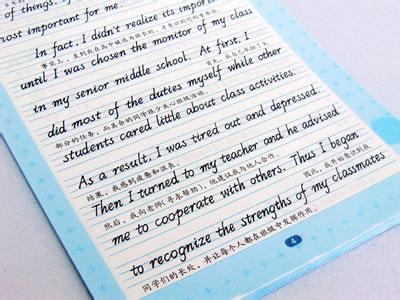 of things.
most important for me.
In fact, I didn't realize its impor
事实上,
until I was chosen the monitor of my class
in my senior middle school. At first, I
did most of the duties myself while other
部分的任务,而其余的同学很少关心班级活动。
students cared little about class activities.
As a result, I was tired out and depressed.
结果,我感到疲惫和沮丧。
Then I turned to my teacher and he advised
然后,我向老师(寻求帮助),他建议我与他人合作。
me to cooperate with others. Thus I began
因此,我开始意识到我
to recognize the strengths of my classmates
同学们的长处,并让每个人都在班级中发挥作用。
4